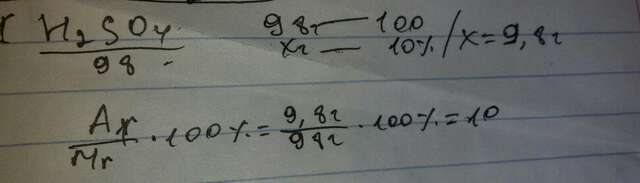 H₂SO₄ 98г — 100
98 xг — 10% / x = 9,8г
Ar/Mr · 100% = 9,8г/98г · 100% = 10